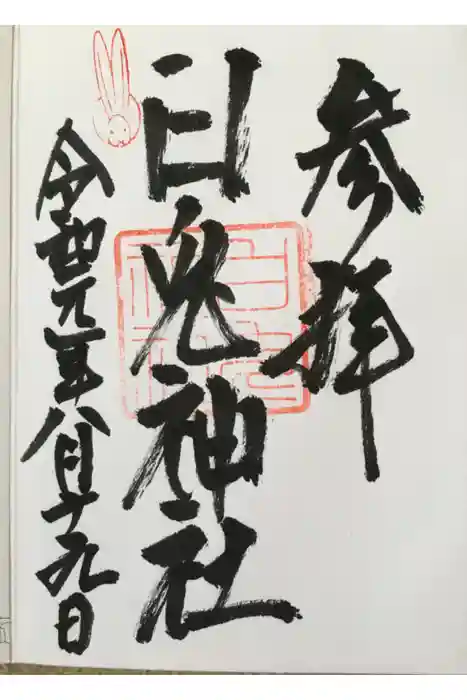 参拝
白兔神社
令和元年八月十九日